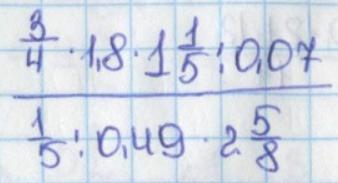 3/4 · 1,8 · 1 1/5 : 0,07
1/5 : 0,49 · 2 5/8